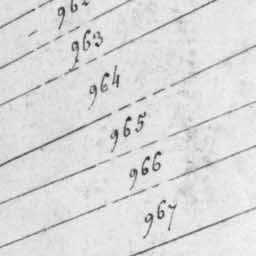 962
963
964
965
966
967